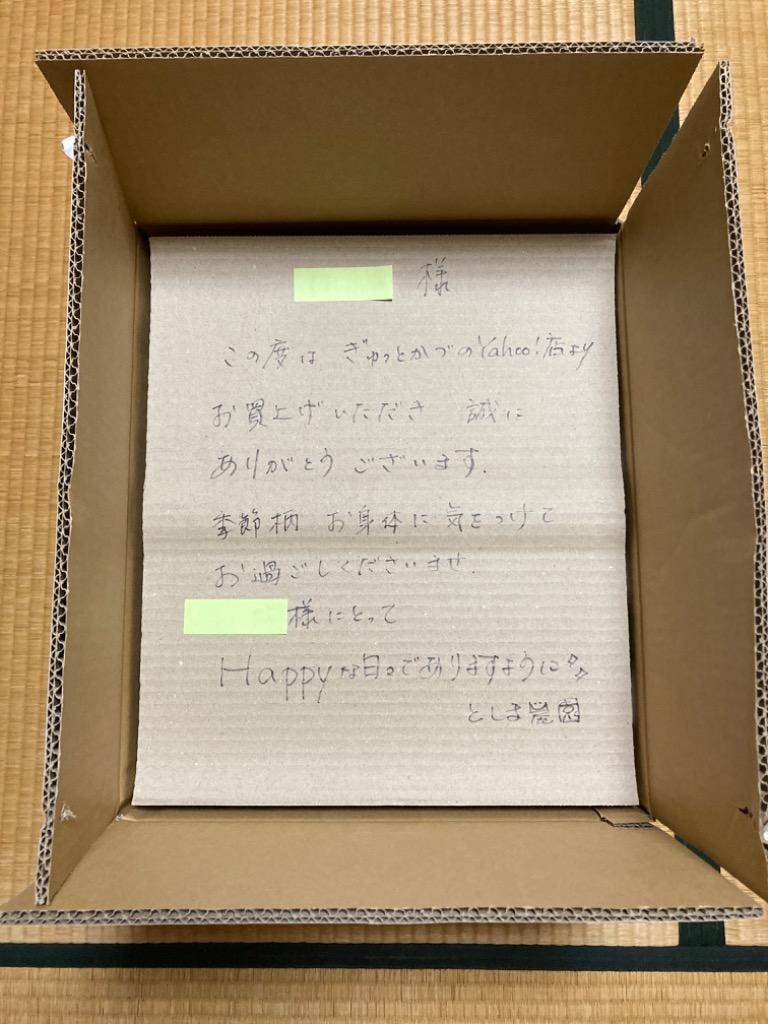 様
この度は ぎゅっとかづのYahoo!店より
お買上げいただき 誠に
ありがとうございます.
季節柄 お身体に気をつけて
お過ごしくださいませ.
様にとって
Happyな日々でありますように
としま農園